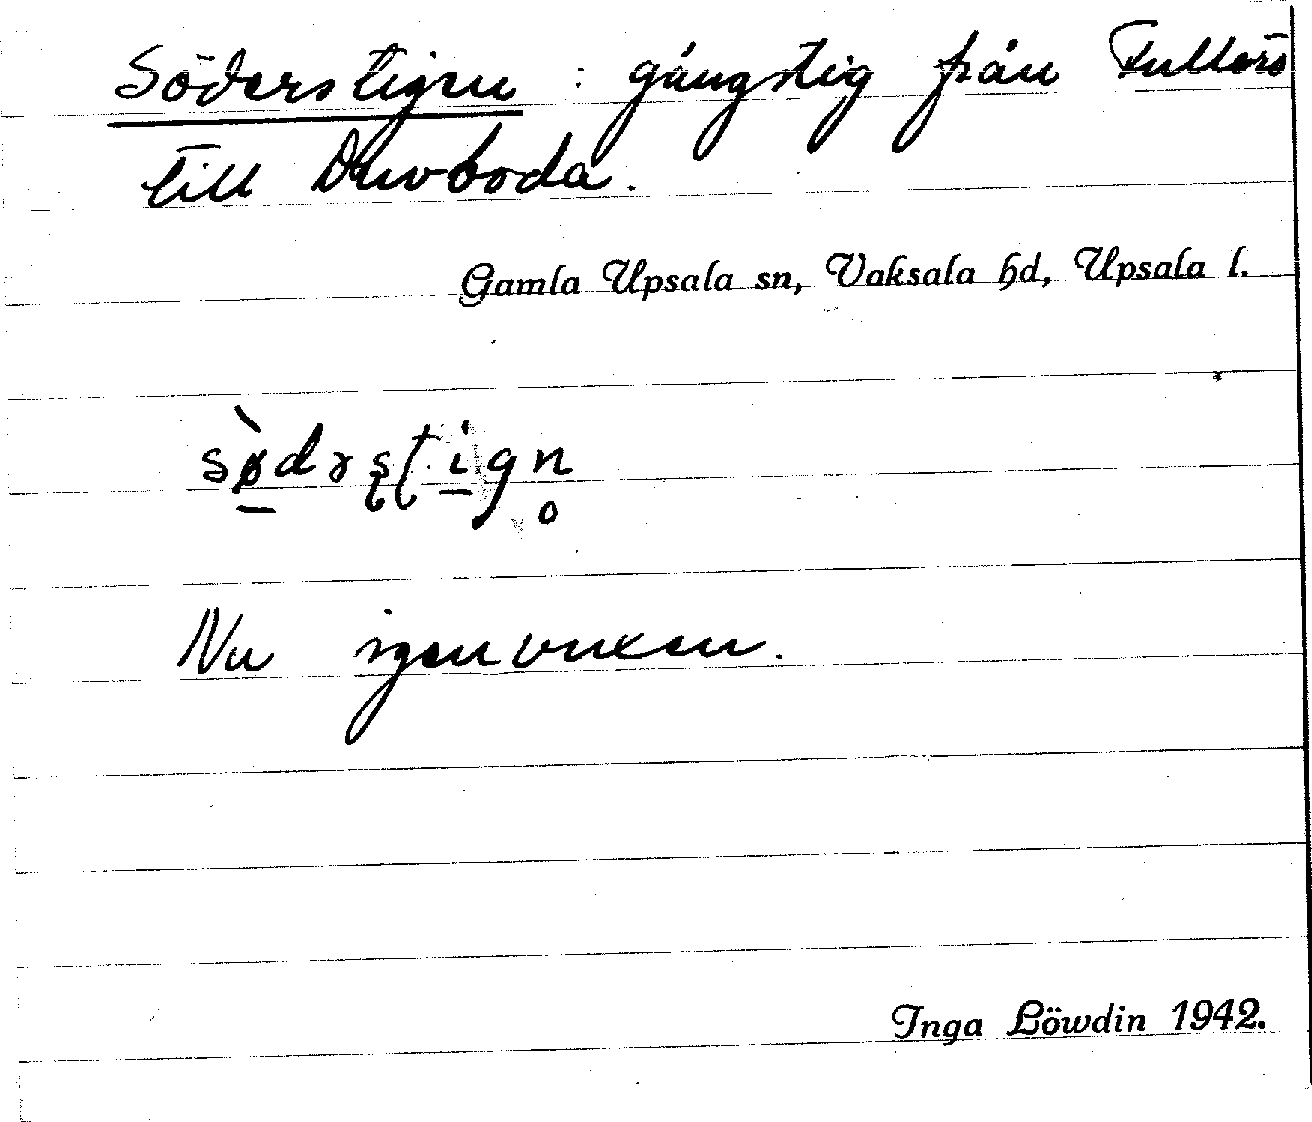 Söderstigen : gångstig från Fullerö
till Duvboda.
Gamla Upsala sn, Vaksala hd, Upsala l.
Nu igenvuxen.
Inga Löwdin 1942.